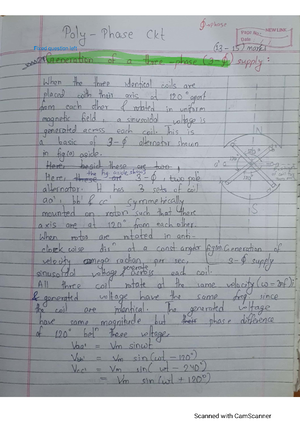 Poly-Phase Ckt
(13-15) marks
Generation of a three-phase (3-ϕ) supply:
When the three identical coils are
placed with their axis at 120° apart
from each other & rotated in uniform
magnetic field, a sinusoidal voltage is
generated across each coil. this is
a basic of 3-ϕ alternator shown
in fig(a) aside.
Here, 3-ϕ two pole
alternator. It has 3 sets of coil
aa', bb' & cc' symmetrically
mounted on rotor such that there
axis are at 120° from each other.
When rotor are rotated in anti-
clock wise dirⁿ at a const angular
velocity radian per sec,
sinusoidal voltage generate across each coil.
Generation of
3-ϕ supply
All three coil rotate at the same velocity
& generated voltage have the same since
the coil are identical. The generated voltage
have same magnitude but phase difference
of 120° betⁿ these voltage.
Vaa' = Vm sinωt
Vbb' = Vm sin(ωt - 120°)
Vcc' = Vm sin(ωt - 240°)
= Vm sin(ωt + 120°)
Scanned with CamScanner